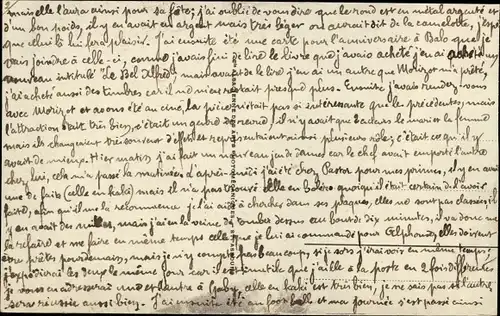 mais elle l'aura ainsi pour sa fête; j'ai oublié de vous dire que le rond est en métal argenté et
d'un bon poids, il y en avait en argent mais très léger on aurait dit de la camelotte, j'espère
que cela lui fera plaisir. J'ai ensuite été une carte pour l'anniversaire à Balo que je
vais joindre à celle-ci, comme j'avais fini de lire le livre que j'avais acheté j'en ai acheté un
nouveau intitulé "Le Bel Alfred" mais avant de le lire j'en ai un autre que Morizot m'a prêté,
j'ai acheté aussi des timbres car il ne m'en restait presque plus. Ensuite j'avais rendez-vous
avec Morizot et avons été au ciné, la pièce n'était pas si intéressante que la précédente, mais
l'attraction était très bien, c'était un genre de il n'y avait que 2 acteurs le mari et la femme
mais ils changeaient très souvent d'effets et représentaient ainsi plusieurs rôles, c'était ce qu'il y
avait de mieux. Hier matin j'ai fait un nouveau jeu de dames car le chef avait emporté l'autre
chez lui, cela m'a passé la matinée, l'après-midi j'ai été chez Castor pour mes primes, il y en avait
une de faite (celle en kaki) mais il n'a pas trouvé celle en Boléro quoiqu'il était certain de l'avoir
faite, afin qu'il ne la recommence je l'ai aidé à chercher dans ses plaques, elles ne sont pas classées, il
y en avait des milles, mais j'ai eu la veine de tomber dessus au bout de dix minutes, il va donc
la refaire et me faire en même temps celle que je lui ai commandé pour Alphonse, elles doivent
être prêtes pour demain, mais je n'y compte pas beaucoup, si je sors j'irai voir en même temps j'
expédierai les deux le même jour car il est inutile que j'aille à la poste en 2 fois différentes
je vous en adresserai une et l'autre à Gaby, celle en kaki est très bien, je ne sais pas si l'autre
sera réussie aussi bien. J'ai ensuite été au foot-ball et ma journée s'est passée ainsi